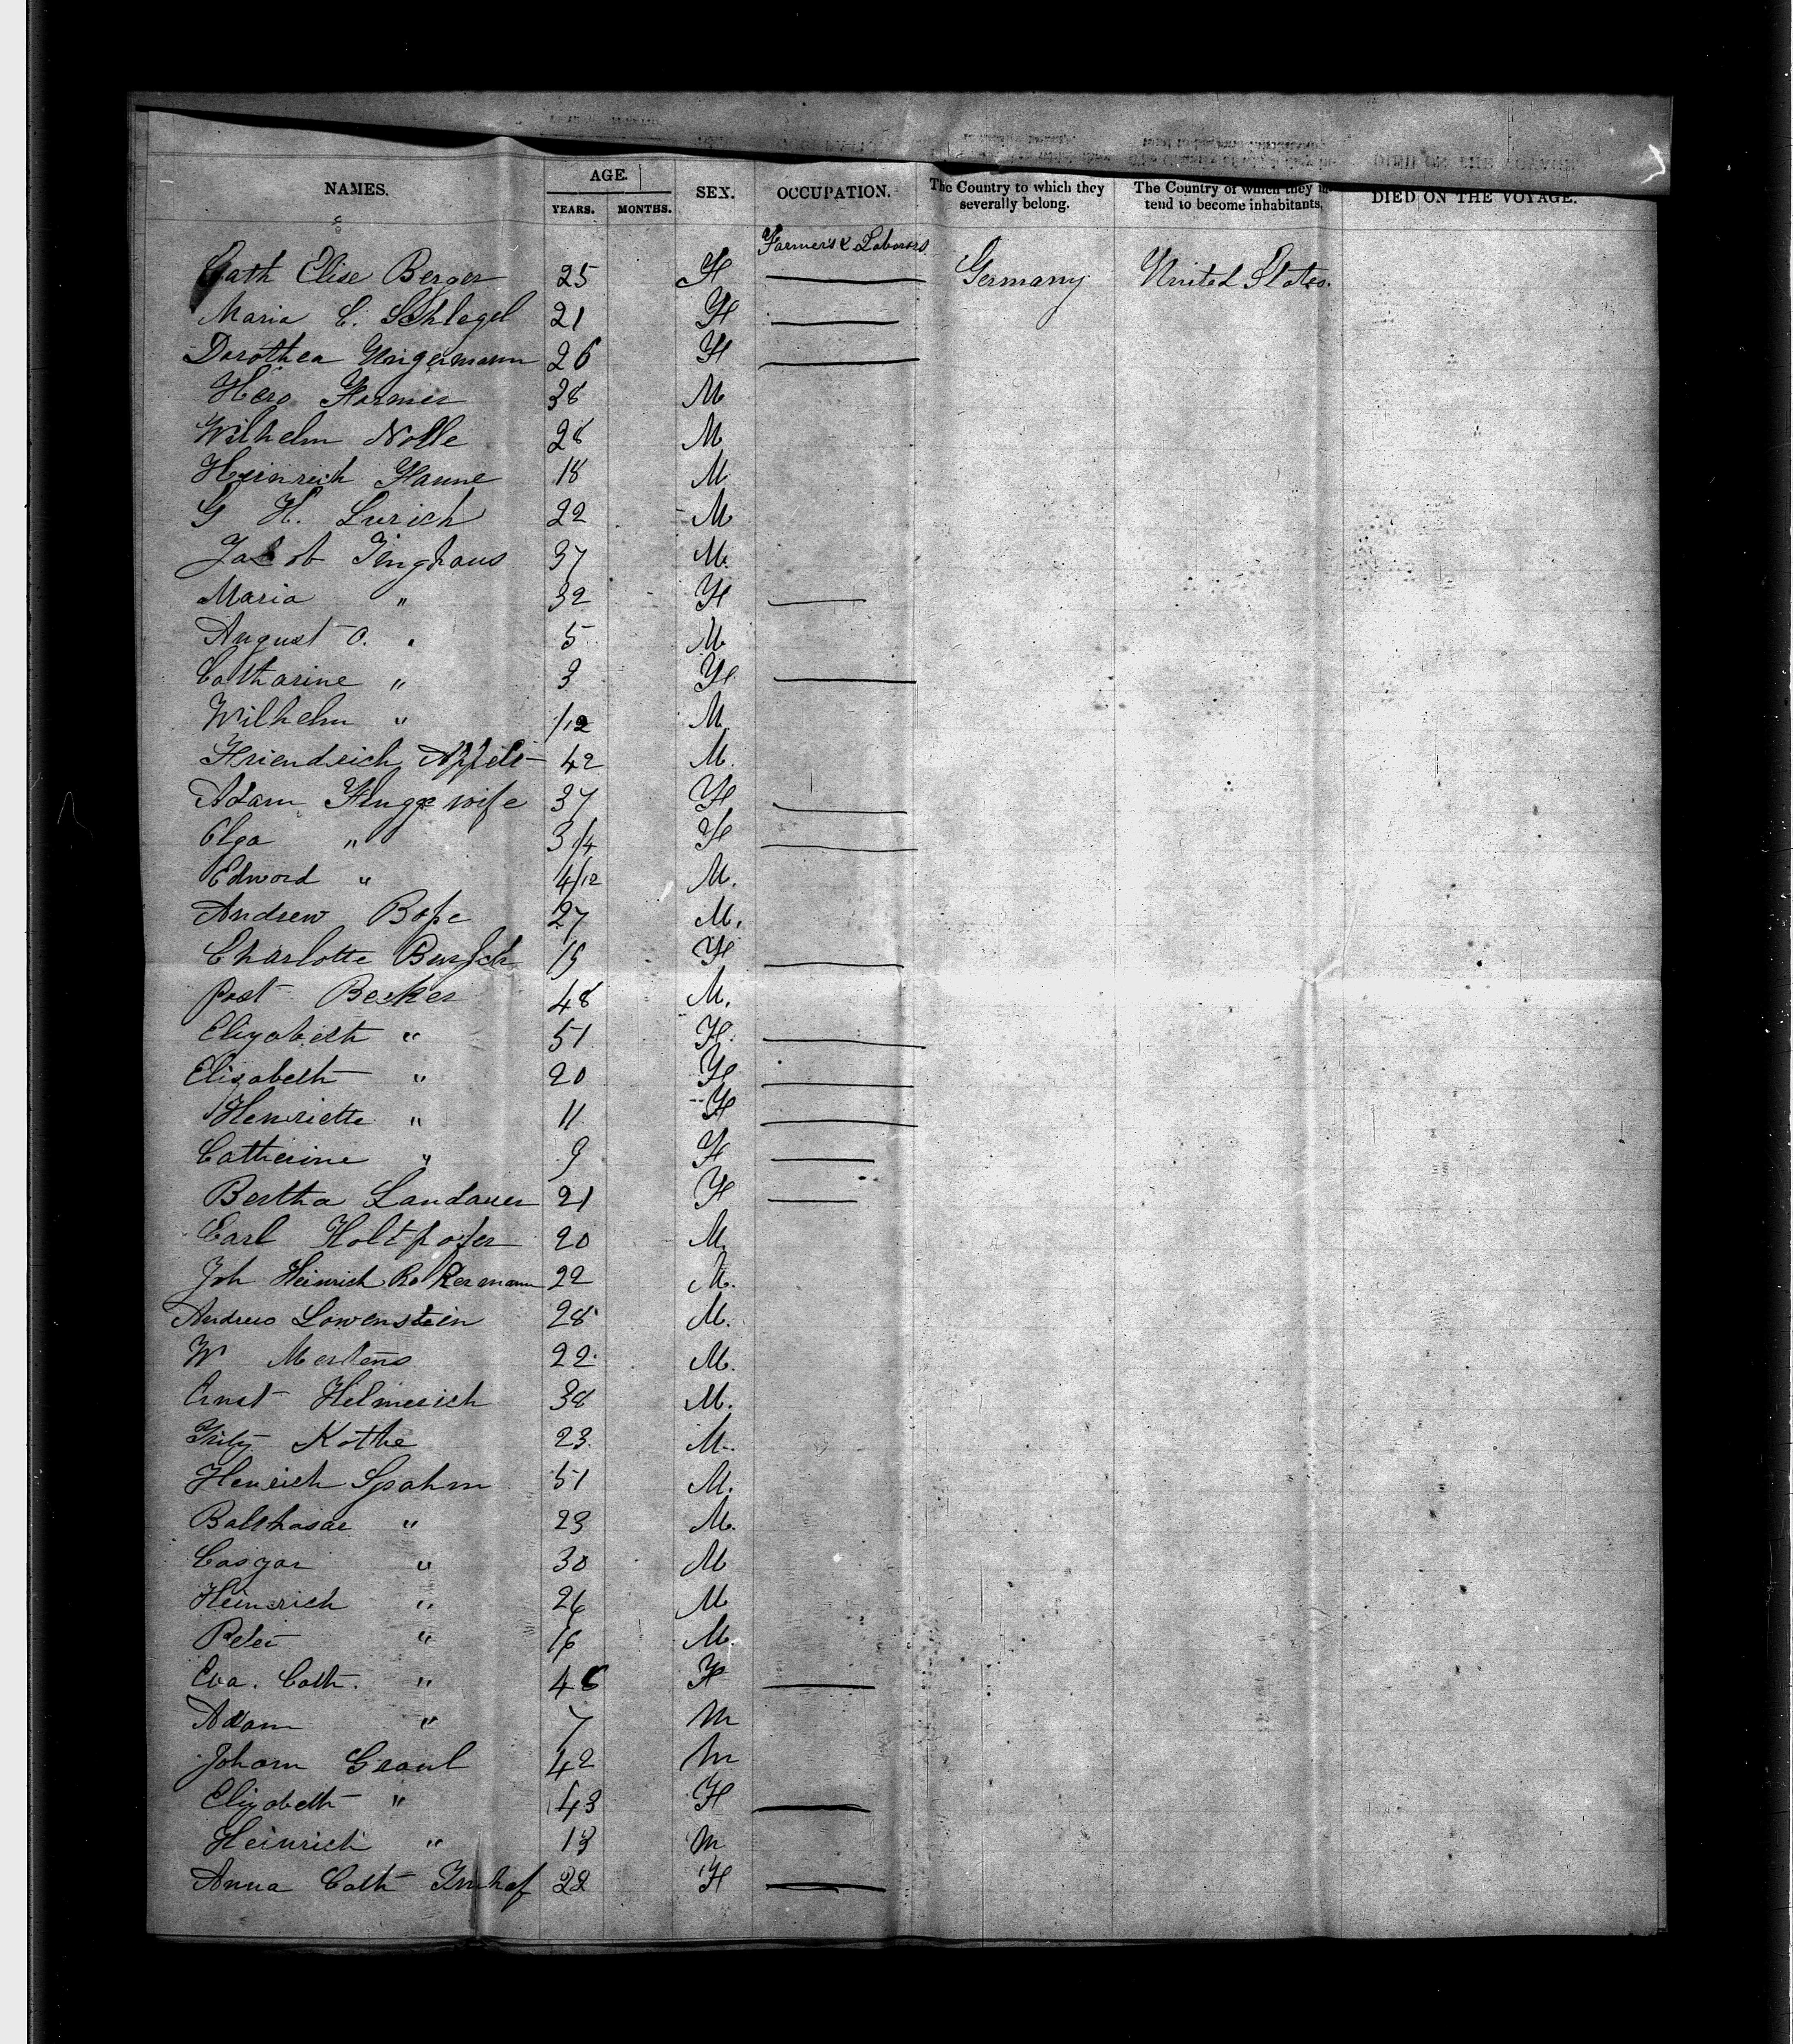 NAMES. AGE. SEX. OCCUPATION. The Country to which they severally belong. The Country of which they in-tend to become inhabitants. DIED ON THE VOYAGE.
YEARS. MONTHS.
Farmers & Laborers
Cath Elise Berger 25 F Germany United States.
Maria C. Schlegel 21 F
Dorothea Ungermann 26 F
Haro Harmer 38 M
Wilhelm Nolle 28 M
Heinrich Hanne 18 M
G H. Lurich 22 M
Jacob Jinghaus 37 M.
Maria " 32 F
August O. " 5 M
Catharine " 3 F
Wilhelm " /12 M.
Friendrich 42 M.
Adam wife 37 F
Olga " 3/4 F
Edward " 4/12 M.
Andrew Bope 27 M.
Charlotte 19 F
Post Becker 48 M.
Elizabeth " 51 F.
Elisabeth " 20 F
Henriette " 11 F
Catherine " 9 F
Bertha Landauer 21 F
Carl 20 M.
Joh Heinrich Rokermann 22 M.
Andrew Lowenstein 28 M.
W Mertens 22 M.
Ernst Helmerich 38 M.
Fritz Kothe 23 M.
Henrich Spahm 51 M.
Balthasar " 23 M.
Caspar " 30 M
Heinrich " 26 M
Peter " 16 M.
Eva. Cath. " 46 F
Adam " 7 M
Johann Graul 42 M
Elizabeth " 43 F
Heinrich " 13 M
Anna Cath Imhof 22 F